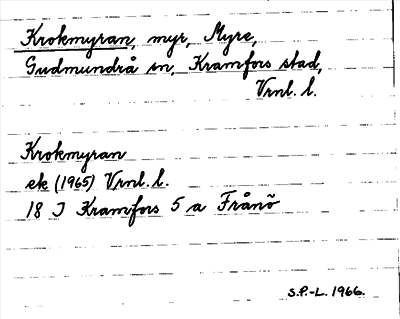 Krokmyran, myr, Myre,
Gudmundrå sn, Kramfors stad,
Vrnl. l.
Krokmyran
ek (1965) Vrnl. l.
18 J Kramfors 5 a Frånö
S.P.-L. 1966.